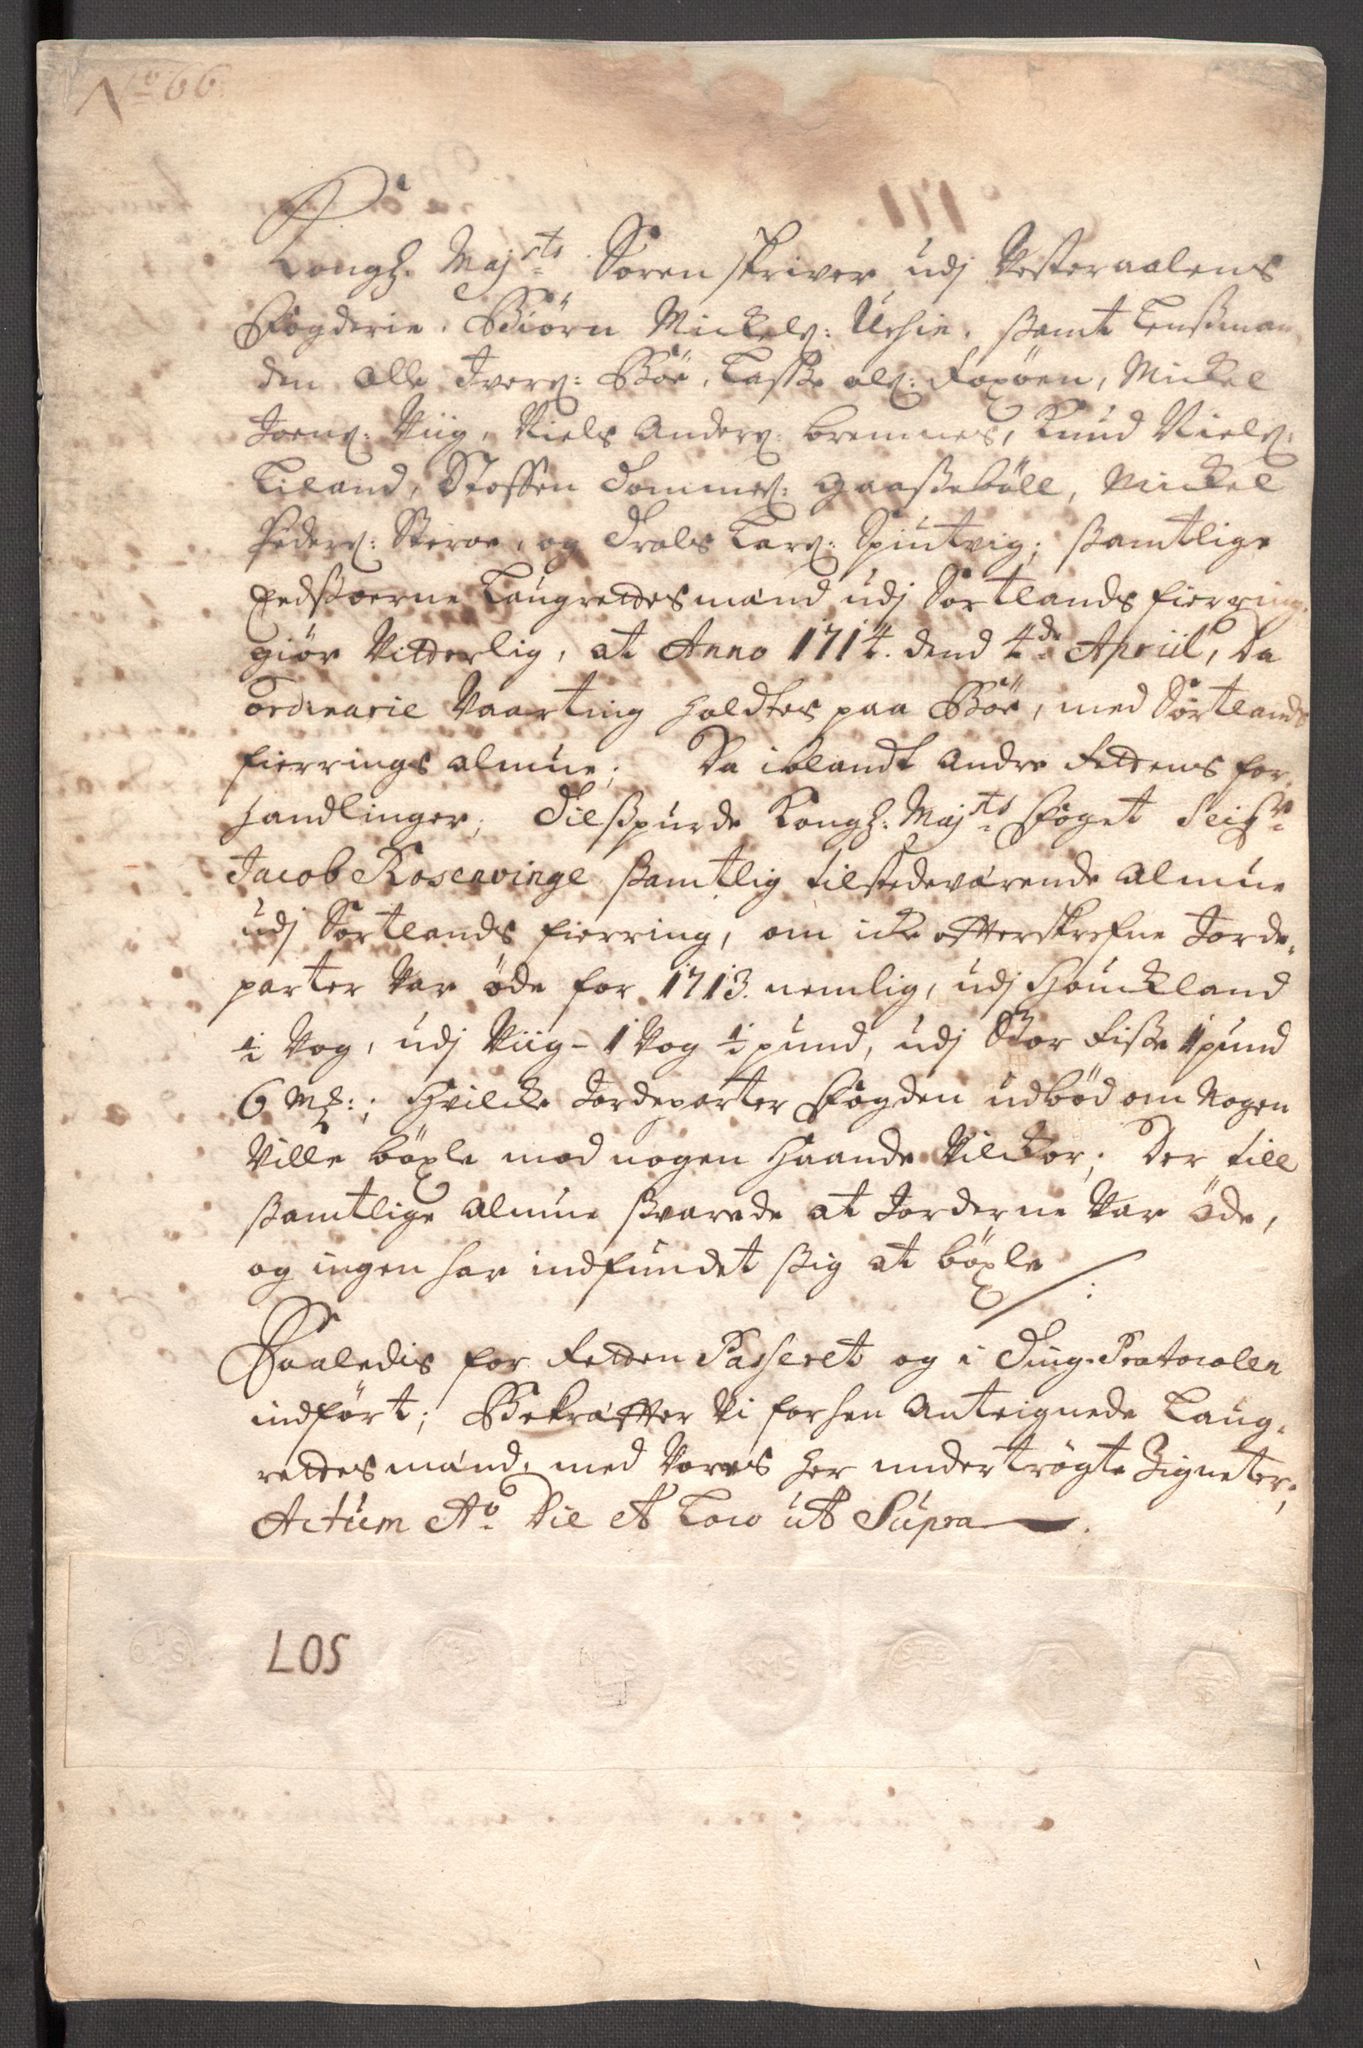 No 66
Kongl. Majsts Sorenskriver udj Vesteraalens
Fogderie, Biørn Mickels: Ursin, samt Lensman
den Olle Ivers: Böe, Lasse ols: Foxöen, Mickel
Joens: Viig, Niels Anders: Bremnes, Knud Niels:
Liland, Stoffen Tommes: Gaassebøll, Mickel
Peders: Steroe, og Trols Lars: Spiutvig; samtlige
Eedsvoerne Laugrettesmænd udj Sortlands fierring
giør Vitterlig, at Anno 1714. dend 4de Apriil, Da
ordinarie Vaarting holdtes paa Böe, med Sortlands
fierrings almue; Da iblandt andre Rettens for
handlinger, Tilspurde Kongl: Majsts Foget Seigr.
Jacob Rosenvinge samtlig tilstedeværende almue
udj Sortlands fierring, om icke efterskrefne Jorde-
parter Var öde for 1713. nemlig, udj Houckland
½ Vog, udj Viig - 1 Vog ½ pund, udj Stor Fisse 1 pund
6 mk:; Hvilcke Jordeparter Fogden udböd om Nogen
Ville böxle med nogen Haande Vilckor; Der till
samtlige almue svarede at Jorderne Var öde,
og ingen har indfundet sig at böxle /:
Saaledis for Retten Passeret og i Ting-Protocollen
indført; Bekræfter Vi forhen Anteignede Laug-
rettesmænd, med Vores her undertrögte Zigneter,
Actum Ao Die et Loco ut Supra
LOS